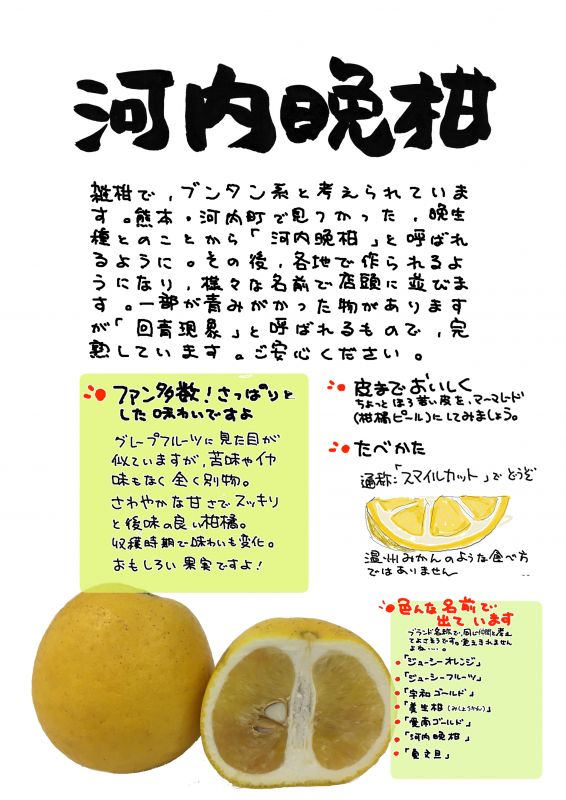 河内晩柑
雑柑で、ブンタン系と考えられていま
す。熊本・河内町で見つかった、晩生
種とのことから「河内晩柑」と呼ばれ
るように。その後、各地で作られるよ
うになり、様々な名前で店頭に並びま
す。一部が青みがかった物があります
が「回青現象」と呼ばれるもので、完
熟しています。ご安心ください。
ファン多数！さっぱりと
した味わいですよ
グレープフルーツに見た目が
似ていますが、苦味やイヤ
味もなく全く別物。
さわやかな甘さでスッキリ
と後味の良い柑橘。
収穫時期で味わいも変化。
おもしろい果実ですよ！
皮までおいしく
ちょっとほろ苦い皮を、マーマレード
(柑橘ピール)にしてみましょう。
たべかた
通称:「スマイルカット」でどうぞ
温州みかんのような食べ方
ではありません
色んな名前で
出ています
ブランド名称で、同じ仲間と考え
てよさそうです。覚えきれません
よね…。
「ジューシーオレンジ」
「ジューシーフルーツ」
「宇和ゴールド」
「美生柑(みしょうかん)」
「愛南ゴールド」
「河内晩柑」
「夏文旦」